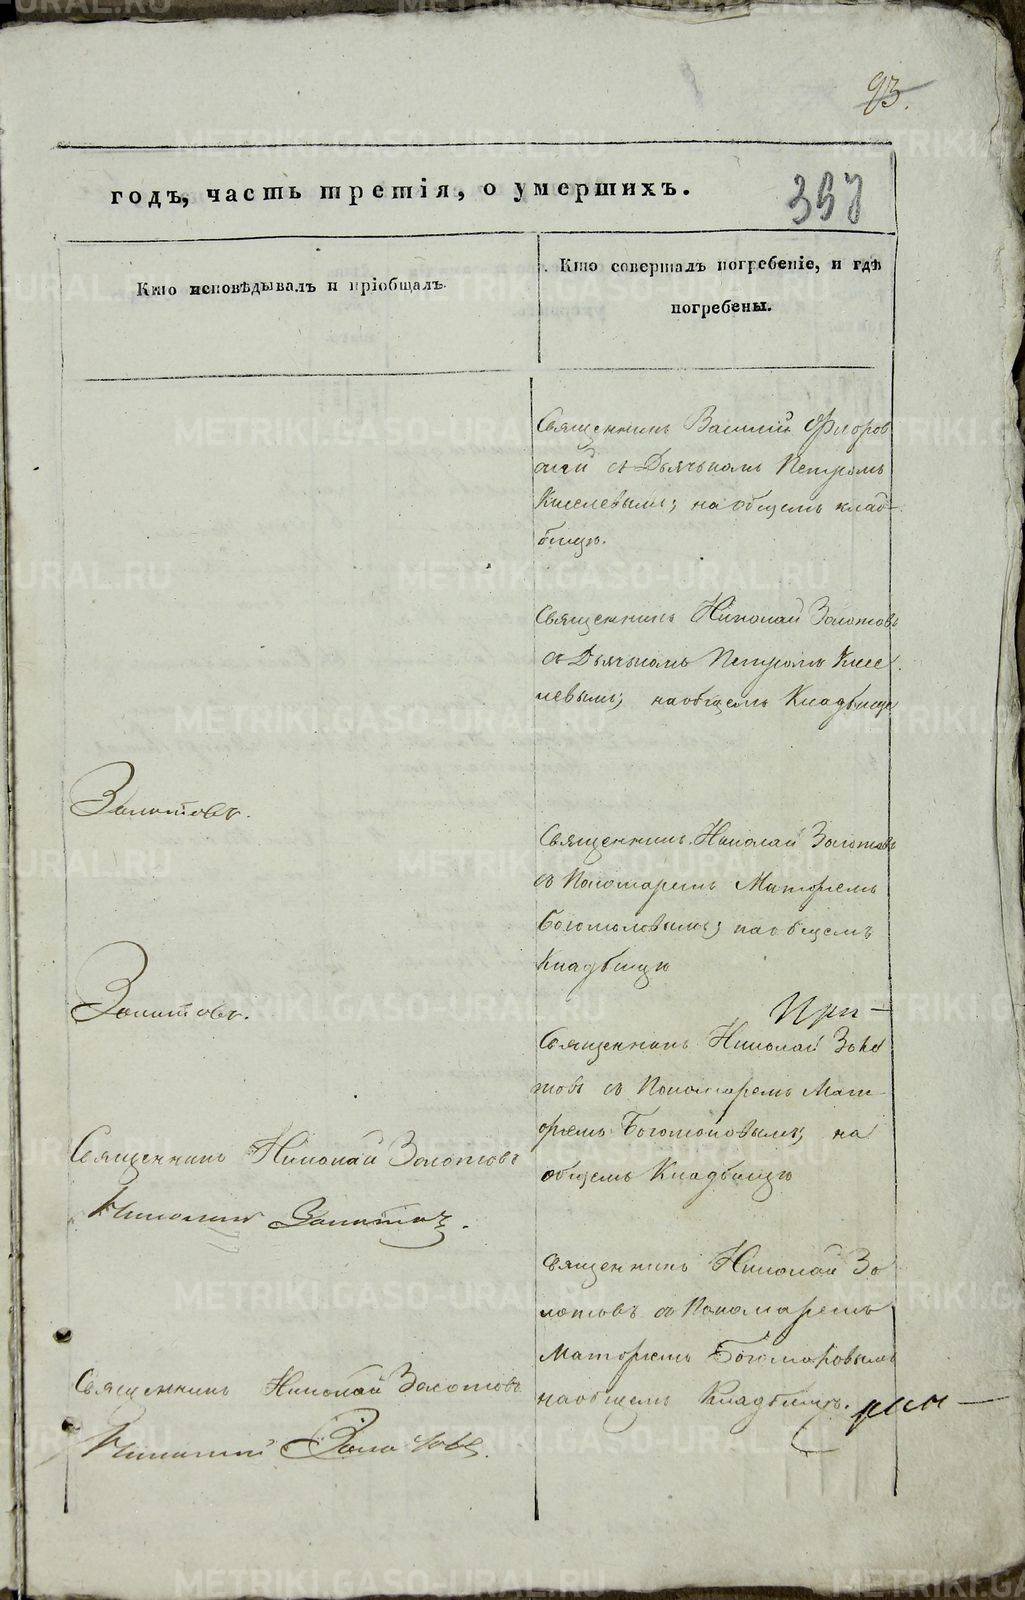 93.
годъ, часть третія, о умершихъ.
397
Кто исповѣдывалъ и пріобщалъ.
Кто совершалъ погребеніе, и гдѣ
погребены.
Священникъ Василій Флоров
скій съ Дьячькомъ Петромъ
Киселевымъ; на общемъ клад-
бищѣ.
Священникъ Николай Золотовъ
съ Дьячькомъ Петромъ Кисе
левымъ; на общемъ Кладбищѣ
Золотовъ.
Священникъ Николай Золотовъ
со Пономаремъ Матфѣемъ
Богомоловымъ; на общемъ
Кладбищѣ
Золотовъ.
При-
Священникъ Николай Золо
товъ со Пономаремъ Мат
фѣемъ Богомоловымъ; на
общемъ Кладбищѣ
Священникъ Николай Золотовъ
Николай Золотовъ.
Священникъ Николай Зо
лотовъ со Пономаремъ
Матфѣемъ
на общемъ Кладбищѣ.
Священникъ Николай Золотовъ
Николай Золотовъ.
METRIKI.GASO-URAL.RU